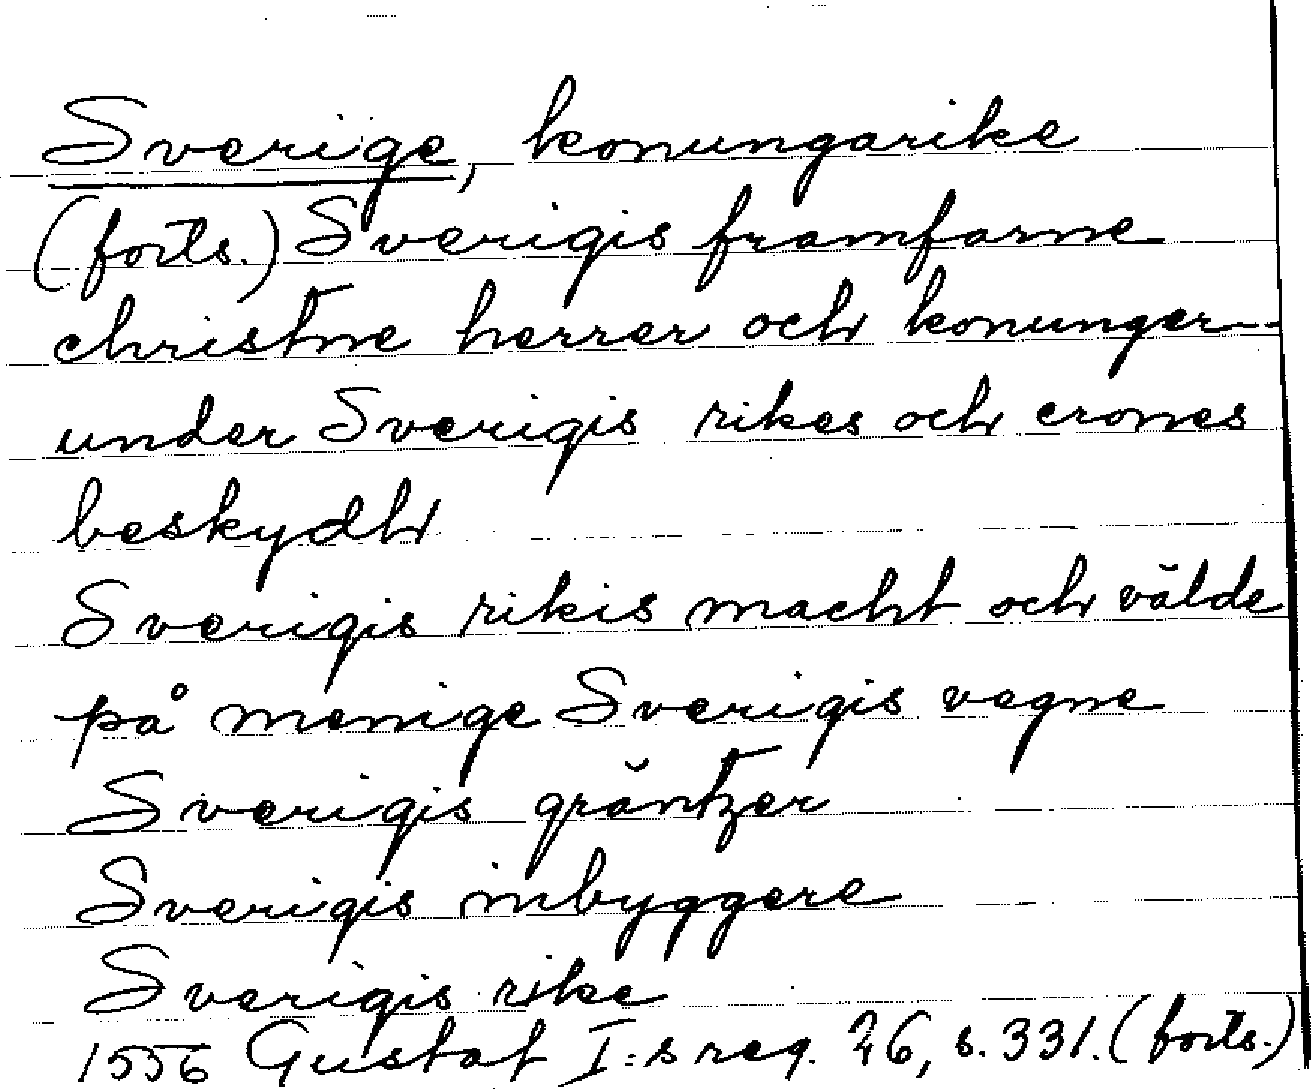 Sverige, konungarike
(forts.) Sverigis framfarne
christne herrer och konunger--
under Sverigis rikes och crones
beskydh
Sverigis rikis macht och välde
på menige Sverigis vegne
Sverigis gräntzer
Sverigis inbyggere
Sverigis rike
1556 Gustaf I:s reg. 26, s. 331. (forts.)